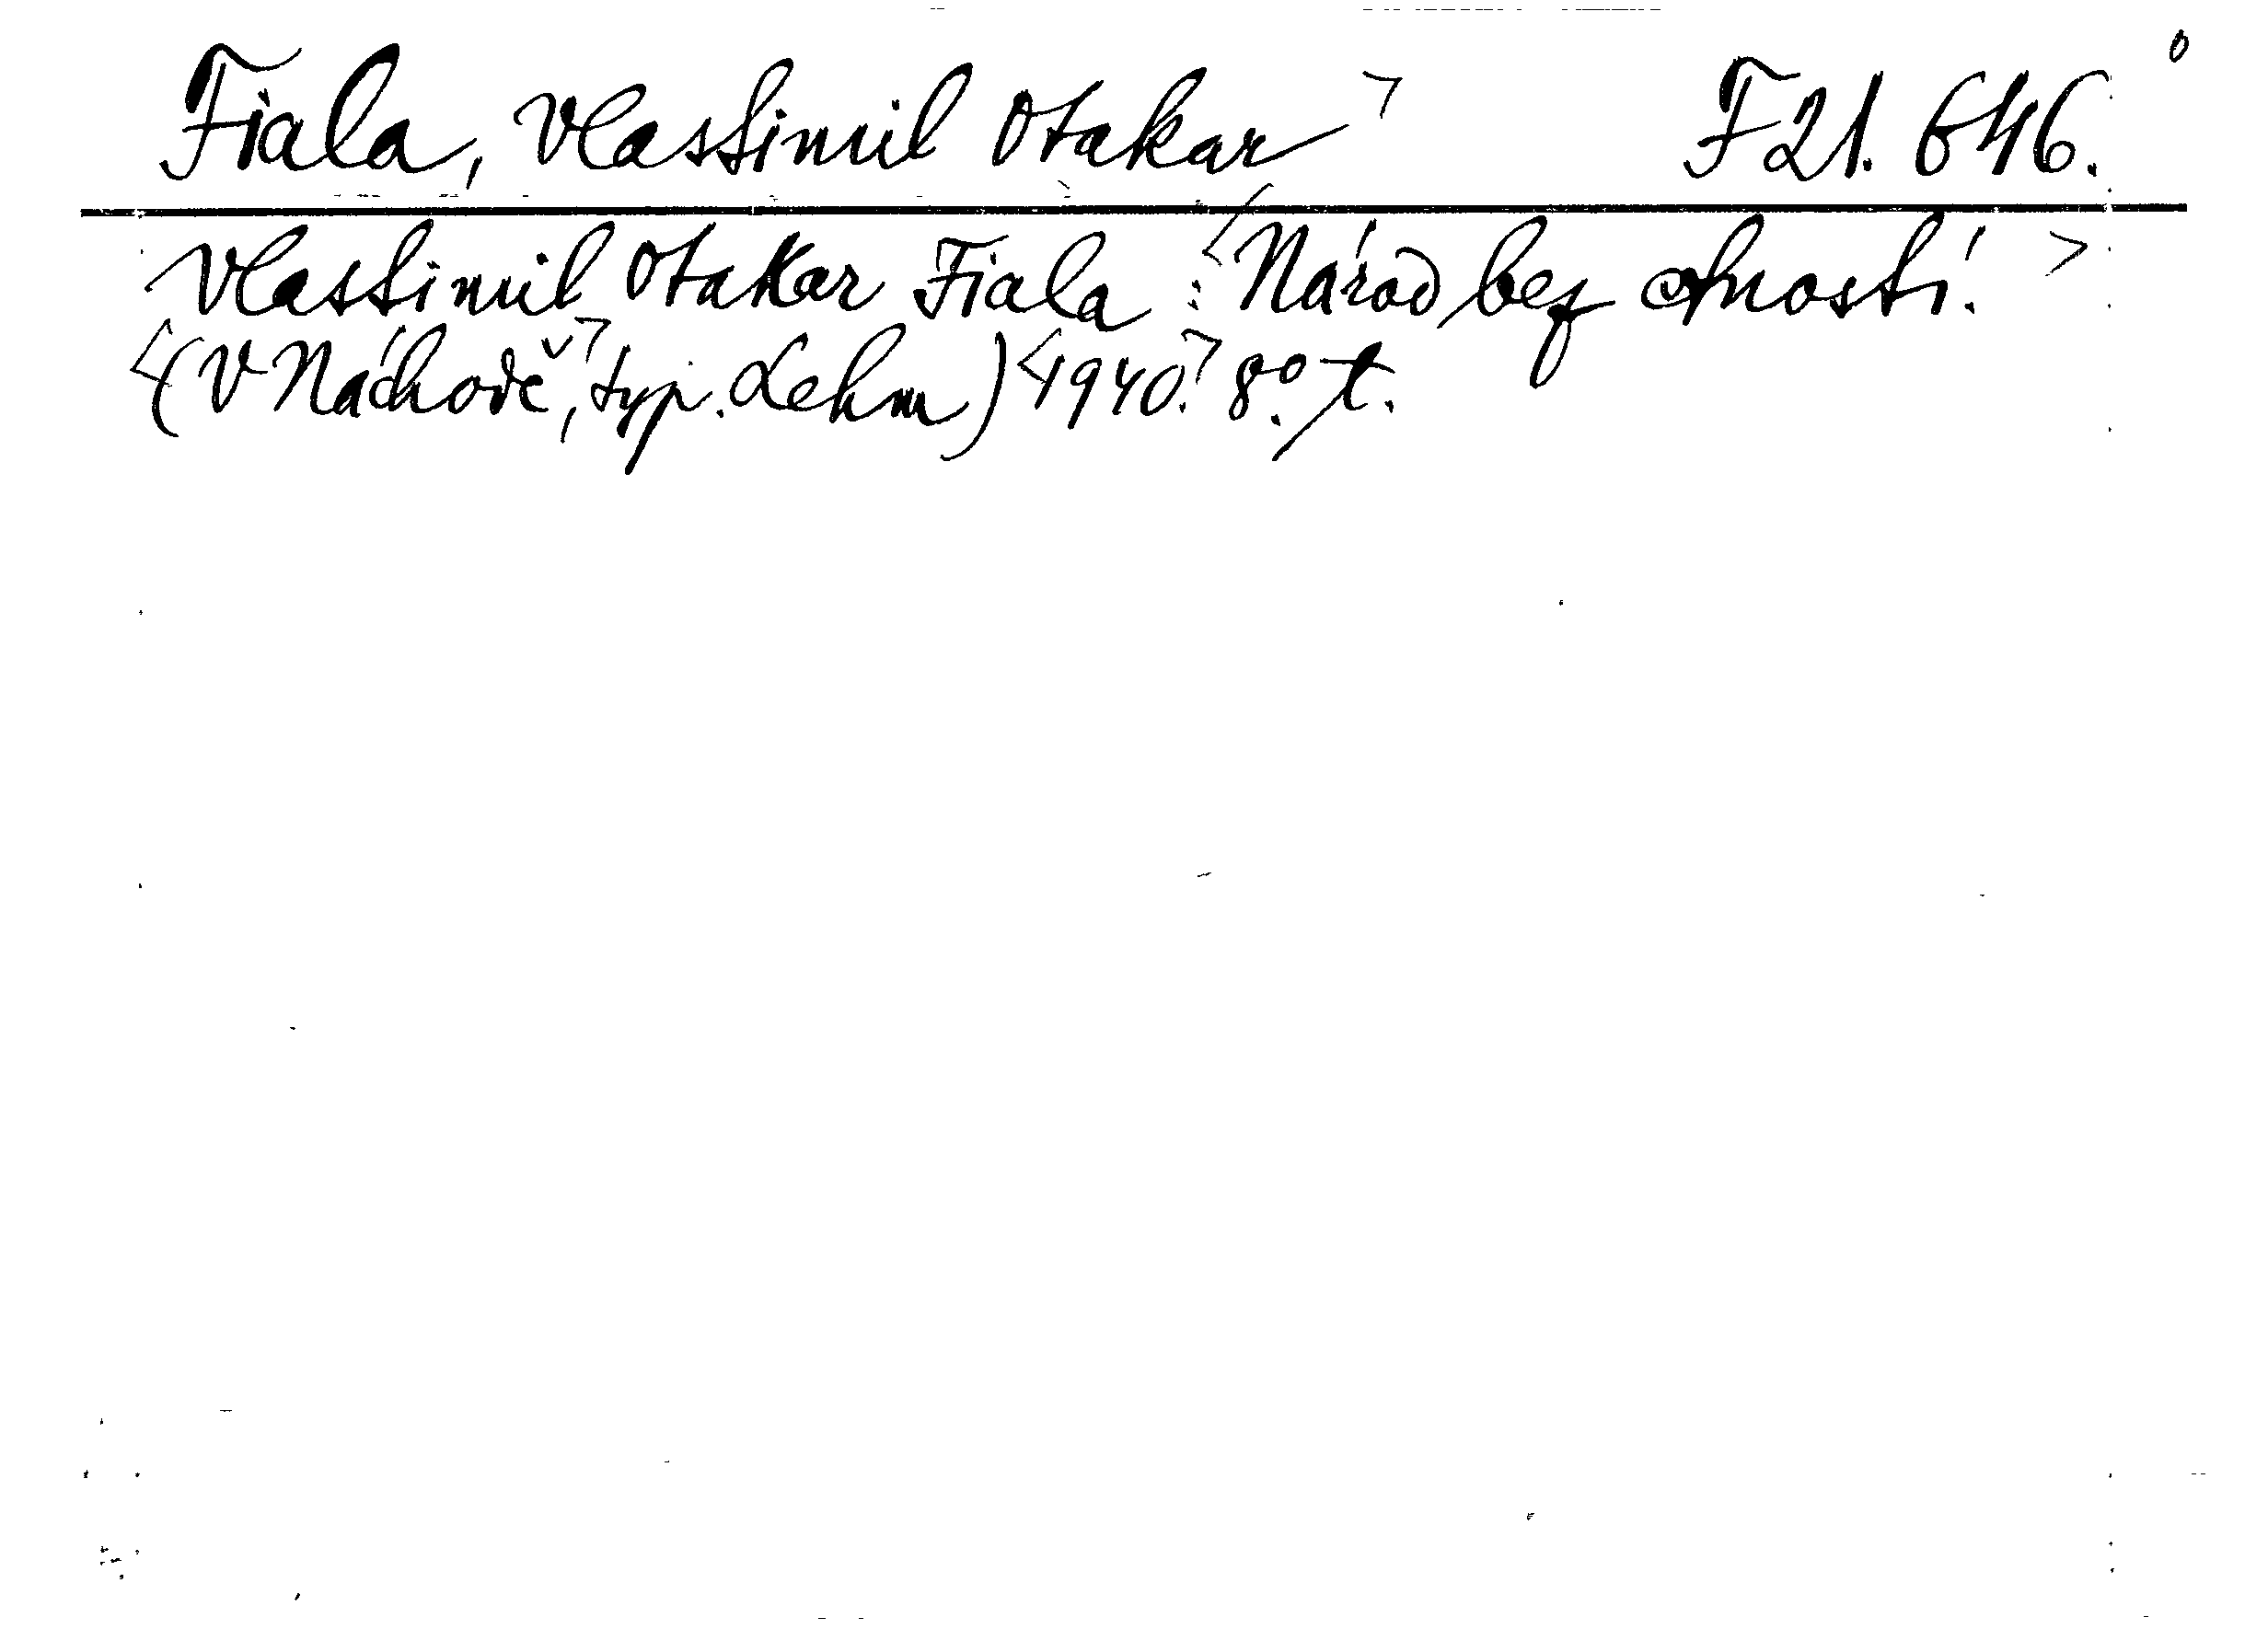 Fiala, Vlastimil Otakar F 21. 646.
Vlastimil Otakar Fiala : Národ bez ctností.
(V Náchodě, typ. Lehm) 1940. 8°. t.